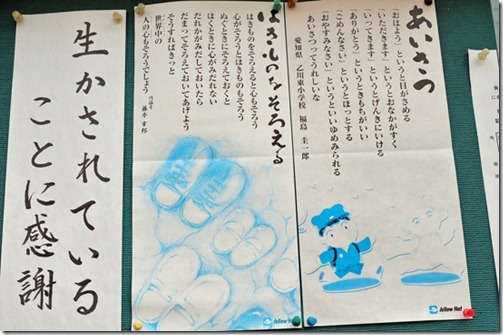 あいさつ
「おはよう」というと目がさめる
「いただきます」というとおなかがすく
「いってきます」というとげんきにいける
「ありがとう」というときもちがいい
「ごめんなさい」というとほっとする
「おやすみなさい」というといいゆめみられる
あいさつってうれしいな
愛知県 乙川東小学校 福島 圭一郎
Yellow Hat
はきものをそろえる
はきものをそろえると心もそろう
心がそろうとはきものもそろう
ぬぐときにそろえておくと
はくときに心がみだれない
だれかがみだしておいたら
だまってそろえておいてあげよう
そうすればきっと
世界中の
人の心もそろうでしょう
藤本 幸邦
Yellow Hat
生かされている
ことに感謝